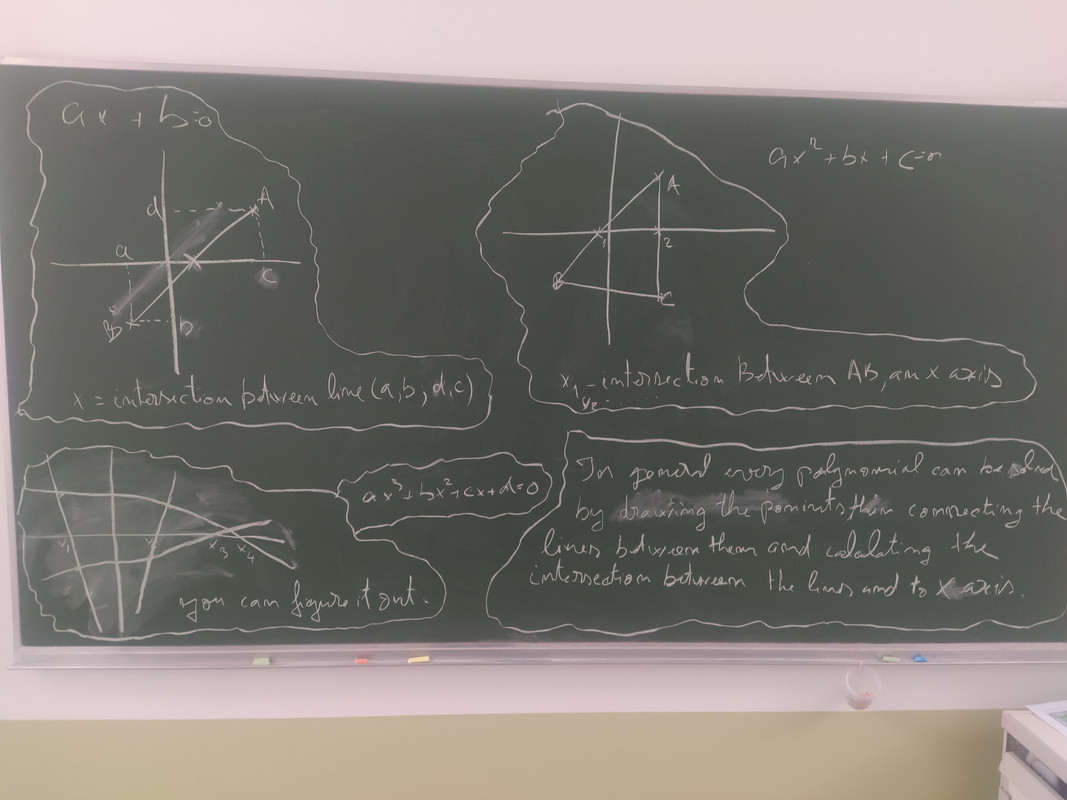 ax + b=0
d
A
a
c
B
b
x = intersection between line (a,b; d,c)
ax² + bx + c=
A
1
2
B
C
x₁ - intersection Between AB, an x axis
x₂ - ......
ax³ + bx² + cx + d = 0
x₁
x₃
x₄
you can figure it out.
In general every polynomial can be
by drawing the then connecting the
lines between them and calculating the
intersection between the lines and to x axis.